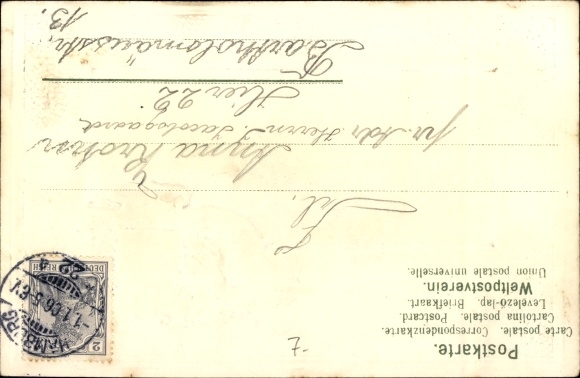 Postkarte.
Carte postale. Correspondenzkarte.
Cartolina postale. Postcard.
Levelező-lap. Briefkaart.
Weltpostverein.
Union postale universelle.
DEUTSCHES REICH
2
HAMBURG
-1.1.06.5-6V.
* 22 a
Frl.
Anna
pr. Adr. Herrn J. Jacobsgaard
Hier 22
Bartholomäusstr.
13.
-7